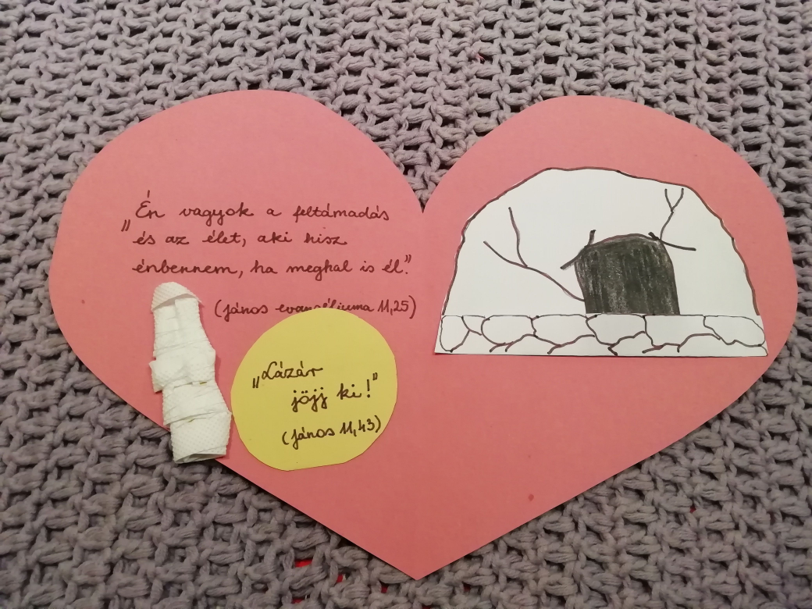 „Én vagyok a feltámadás
és az élet, aki hisz
énbennem, ha meghal is él."
(János evangéliuma 11,25)
„Lázár
jöjj ki!"
(János 11,43)